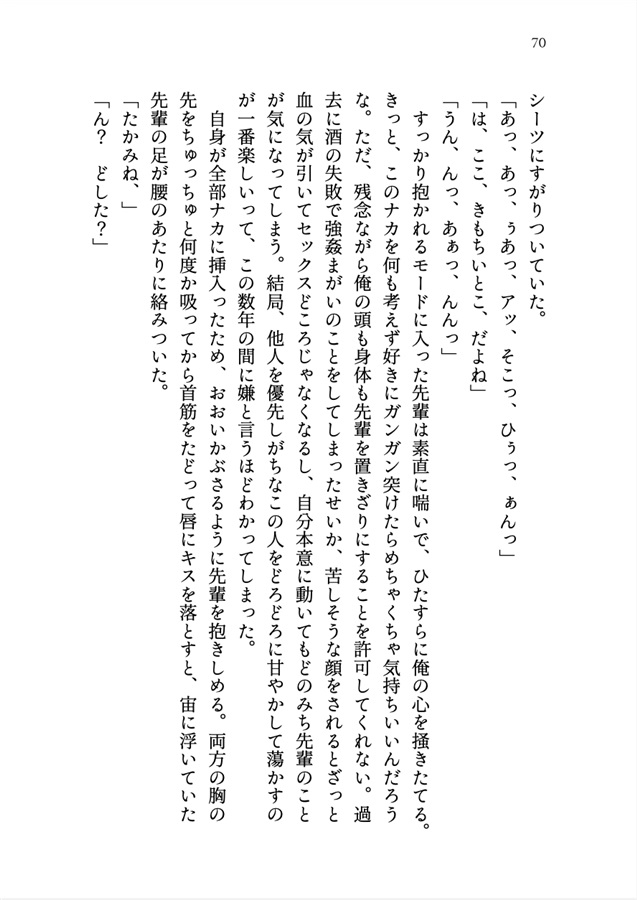 70
シーツにすがりついていた。
「あっ、あっ、ぅあっ、アッ、そこっ、ひぅっ、ぁんっ」
「は、ここ、きもちいとこ、だよね」
「うん、んっ、あぁっ、んんっ」
すっかり抱かれるモードに入った先輩は素直に喘いで、ひたすらに俺の心を掻きたてる。
きっと、このナカを何も考えず好きにガンガン突けたらめちゃくちゃ気持ちいいんだろう
な。ただ、残念ながら俺の頭も身体も先輩を置きざりにすることを許可してくれない。過
去に酒の失敗で強姦まがいのことをしてしまったせいか、苦しそうな顔をされるとざっと
血の気が引いてセックスどころじゃなくなるし、自分本意に動いてもどのみち先輩のこと
が気になってしまう。結局、他人を優先しがちなこの人をどろどろに甘やかして蕩かすの
が一番楽しいって、この数年の間に嫌と言うほどわかってしまった。
自身が全部ナカに挿入ったため、おおいかぶさるように先輩を抱きしめる。両方の胸の
先をちゅっちゅと何度か吸ってから首筋をたどって唇にキスを落とすと、宙に浮いていた
先輩の足が腰のあたりに絡みついた。
「たかみね、」
「ん？　どした？」